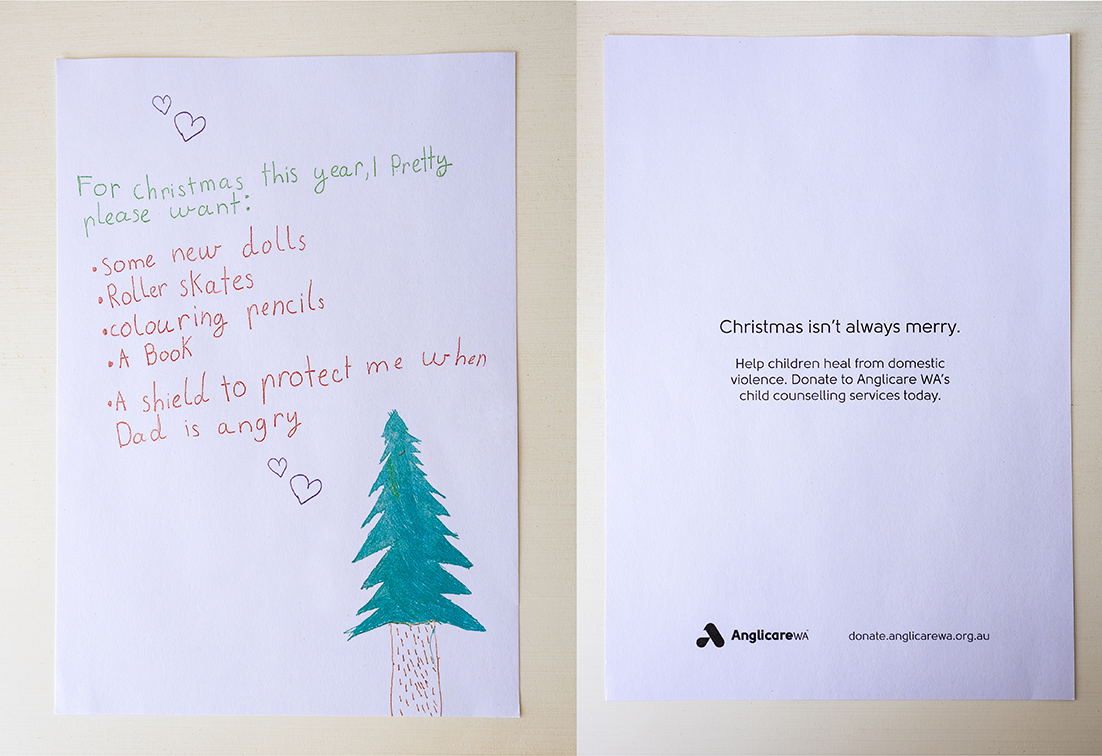 For christmas this year, I Pretty
please want:
•some new dolls
•Roller skates
•colouring pencils
•A Book
•A shield to protect me when
Dad is angry
Christmas isn't always merry.
Help children heal from domestic
violence. Donate to Anglicare WA's
child counselling services today.
Anglicare WA
donate.anglicarewa.org.au